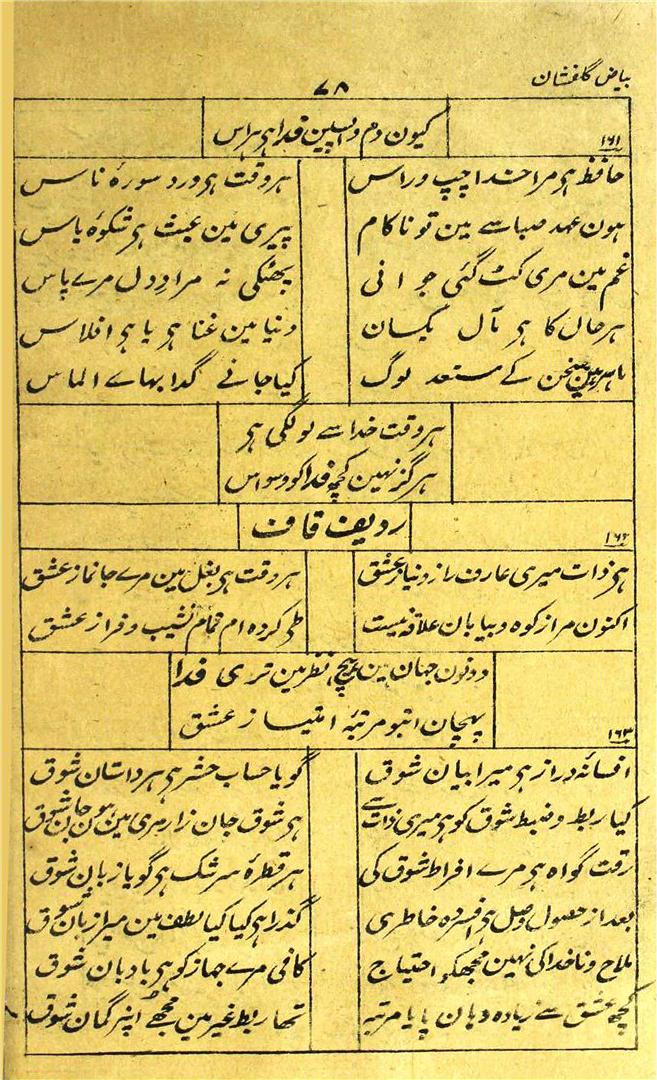 بیاض گلفشان
۷۸
کیون دم واپسین فدا ہی ہراس
۱۶۱
حافظ ہی مرا خدا چپ و راس
ہر وقت ہی ورد سورۂ ناس
ہون عہد صبا سے مین تو ناکام
پیری مین عبث ہی شکوۂ یاس
غم مین مری کٹ گئی جوانی
پھٹکی نہ مراد دل مرے پاس
ہر حال کا ہی مآل یکسان
دنیا مین غنا ہو یا ہو افلاس
ماہر ہین سخن کے مستعد لوگ
کیا جانے گدا بہاے الماس
ہر وقت خدا سے لو لگی ہی
ہرگز نہین کچھ فدا کو وسواس
ردیف قاف
۱۶۲
ہی ذات میری عارف راز و نیاز عشق
ہر وقت ہی بغل مین مرے جانماز عشق
اکنون مرا ز کوہ و بیابان علاقہ نیست
طی کردہ ام تمام نشیب و فراز عشق
دونون جہان ہین ہیچ نظر مین تری فدا
پہچان ابتو مرتبۂ امتیاز عشق
۱۶۳
افسانۂ دراز ہی میرا بیان شوق
گویا حساب حشر ہی ہر داستان شوق
کیا ربط و ضبط شوق کو ہی میری ذات سے
ہی شوق جان زار مری مین ہون جان شوق
رقت گواہ ہی مرے افراط شوق کی
ہر قطرۂ سرشک ہی گویا زبان شوق
بعد از حصول وصل ہی افسردہ خاطری
گذرا ہی کیا کیا لطف مین میرا زمان شوق
ملاح و ناخدا کی نہین مجھکو احتیاج
کافی مرے جہاز کو ہی بادبان شوق
کچھ عشق سے زیادہ وہان پایا مرتبہ
تھا ربط غیر مین مجھے اپنر گمان شوق